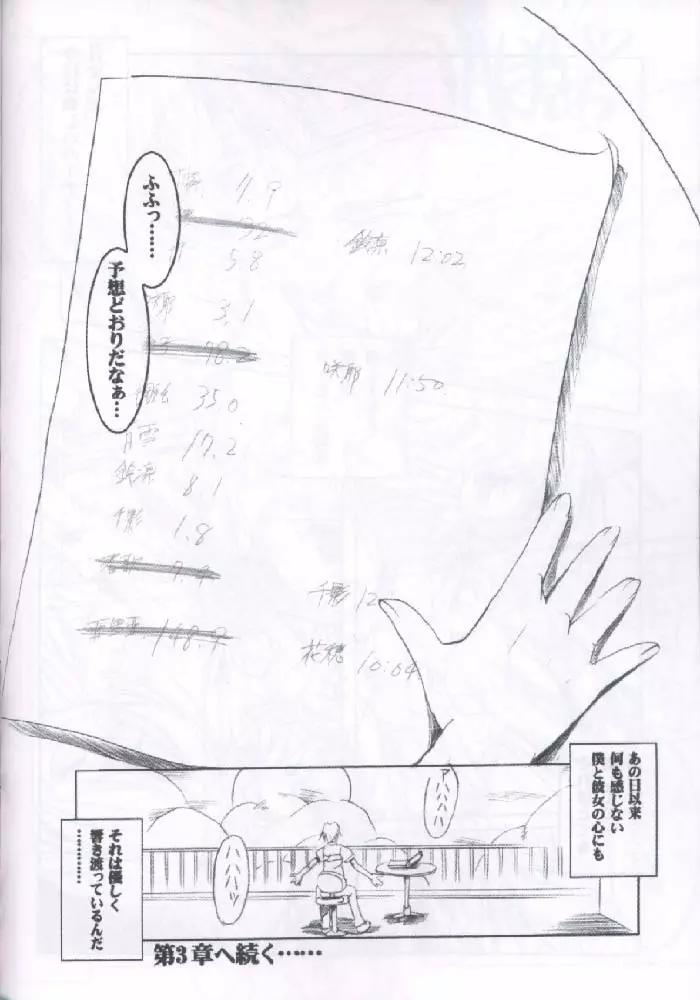 ふふっ……
予想どおりだなぁ…
7.9
92
5.8
3.1
78.2
35.0
17.2
鈴凛
8.1
千影
1.8
7.9
148.9
鈴凛 12:02
咲耶 11:50
千影 12
花穂 10:04
あの日以来
何も感じない
僕と彼女の心にも
アハハハハ
ハハハハッ
それは優しく
響き渡っているんだ
…………
第3章へ続く……